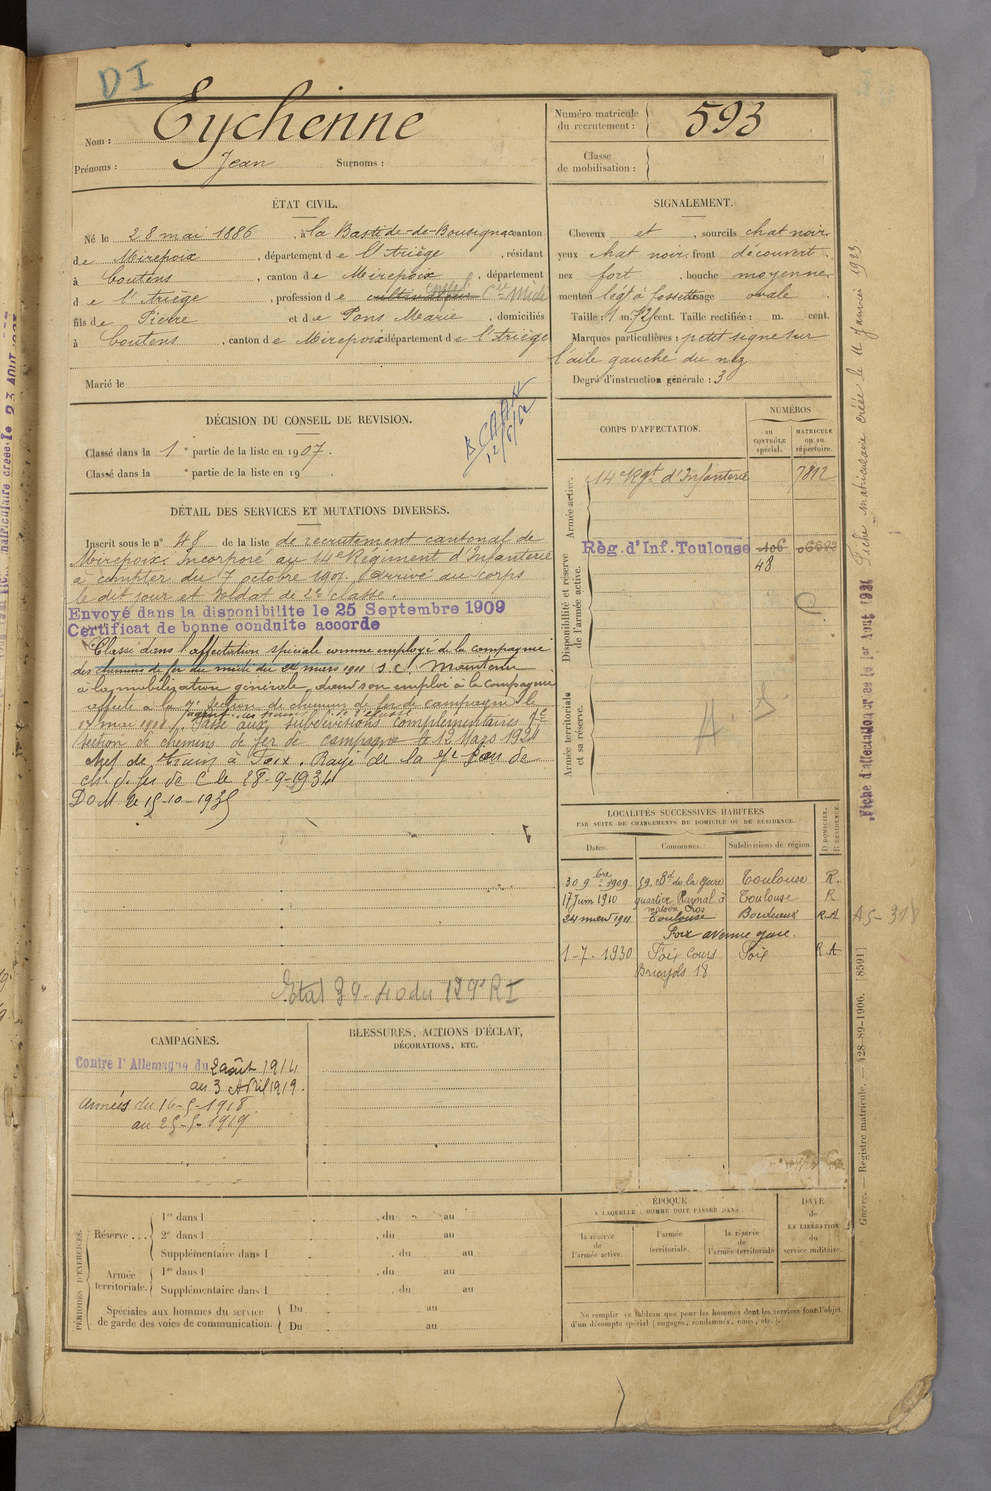 DI
Nom : Eychenne
Prénoms : Jean Surnoms :
Numéro matricule du recrutement : 593
Classe de mobilisation :
ÉTAT CIVIL.
Né le 28 mai 1886, à la Bastide-de-Bousignac canton
de Mirepoix, département de l'Ariège, résidant
à Coutens, canton de Mirepoix, département
de l'Ariège, profession de cultivateur Cie Midi
fils de Pierre et de Pons Marie, domiciliés
à Coutens, canton de Mirepoix département de l'Ariège
Marié le
SIGNALEMENT.
Cheveux et, sourcils chat noir
yeux chat noir front découvert
nez fort, bouche moyenne
menton légt à fossette visage ovale
Taille : 1 m. 72 cent. Taille rectifiée : m. cent.
Marques particulières : petit signe sur
l'aile gauche du nez.
Degré d'instruction générale : 3
DÉCISION DU CONSEIL DE REVISION.
Classé dans la 1e partie de la liste en 1907.
Classé dans la e partie de la liste en 19
12/6/62
DÉTAIL DES SERVICES ET MUTATIONS DIVERSES.
Inscrit sous le n° 48 de la liste de recrutement cantonal de
Mirepoix. Incorporé au 14e Régiment d'Infanterie
à compter du 7 octobre 1907. Arrivé au corps
le dit jour et soldat de 2e classe.
Envoyé dans la disponibilité le 25 Septembre 1909
Certificat de bonne conduite accordé
Classé dans l'affectation spéciale comme employé de la compagnie
des chemins de fer du midi du 24 mars 1911 S.C. Maintenu
à la mobilisation générale dans son emploi à la Compagnie
affecté à la 7e Section de chemin de fer de campagne le
Passé aux subdivisions complémentaires 7e
Section de chemins de fer de campagne le 12 Mars 1921
chef de train à Foix. Rayé de la 7e Son de
ch. d. fer de C le 28-9-1934
DOM le 15-10-1935
Etat 39-40 du 129e RI
CORPS D'AFFECTATION.
NUMÉROS
au CONTRÔLE spécial.
MATRICULE ou au répertoire.
Armée active.
14e Rgt d'Infanterie 7812
Disponibilité et réserve de l'armée active.
Règ. d'Inf. Toulouse 106
48
Armée territoriale et sa réserve.
LOCALITÉS SUCCESSIVES HABITÉES
PAR SUITE DE CHANGEMENTS DE DOMICILE OU DE RÉSIDENCE.
Dates. Communes. Subdivisions de région. D DOMICILE. R RÉSIDENCE.
30 9bre 1909 59, Bd de la Gare Toulouse R.
17 Juin 1910 quartier Raynal à Toulouse R
maison Cros
24 mars 1911 Toulouse Bordeaux R.A
Foix avenue gare.
1-7-1930 Foix Cours Foix R.A
18
CAMPAGNES.
Contre l'Allemagne du 2 août 1914
au 3 Avril 1919.
au 25-5-1919
BLESSURES, ACTIONS D'ÉCLAT,
DÉCORATIONS, ETC.
PÉRIODES D'EXERCICES.
Réserve ...
1re dans l , du au
2e dans l , du au
Supplémentaire dans l , du au
Armée territoriale.
1re dans l , du au
Supplémentaire dans l , du au
Spéciales aux hommes du service de garde des voies de communication.
Du au
Du au
ÉPOQUE
A LAQUELLE L'HOMME DOIT PASSER DANS :
la réserve de l'armée active.
l'armée territoriale.
la réserve de l'armée territoriale
DATE de LA LIBÉRATION du service militaire.
Ne remplir ce tableau que pour les hommes dont les services font l'objet
d'un décompte spécial (engagés, condamnés, omis, etc.).
Fiche matriculaire créée le 11 Janvier 1923
Fiche d'affectation créée le 1er Aout 1921
Registre matricule. — 428-89-1906. [8591]